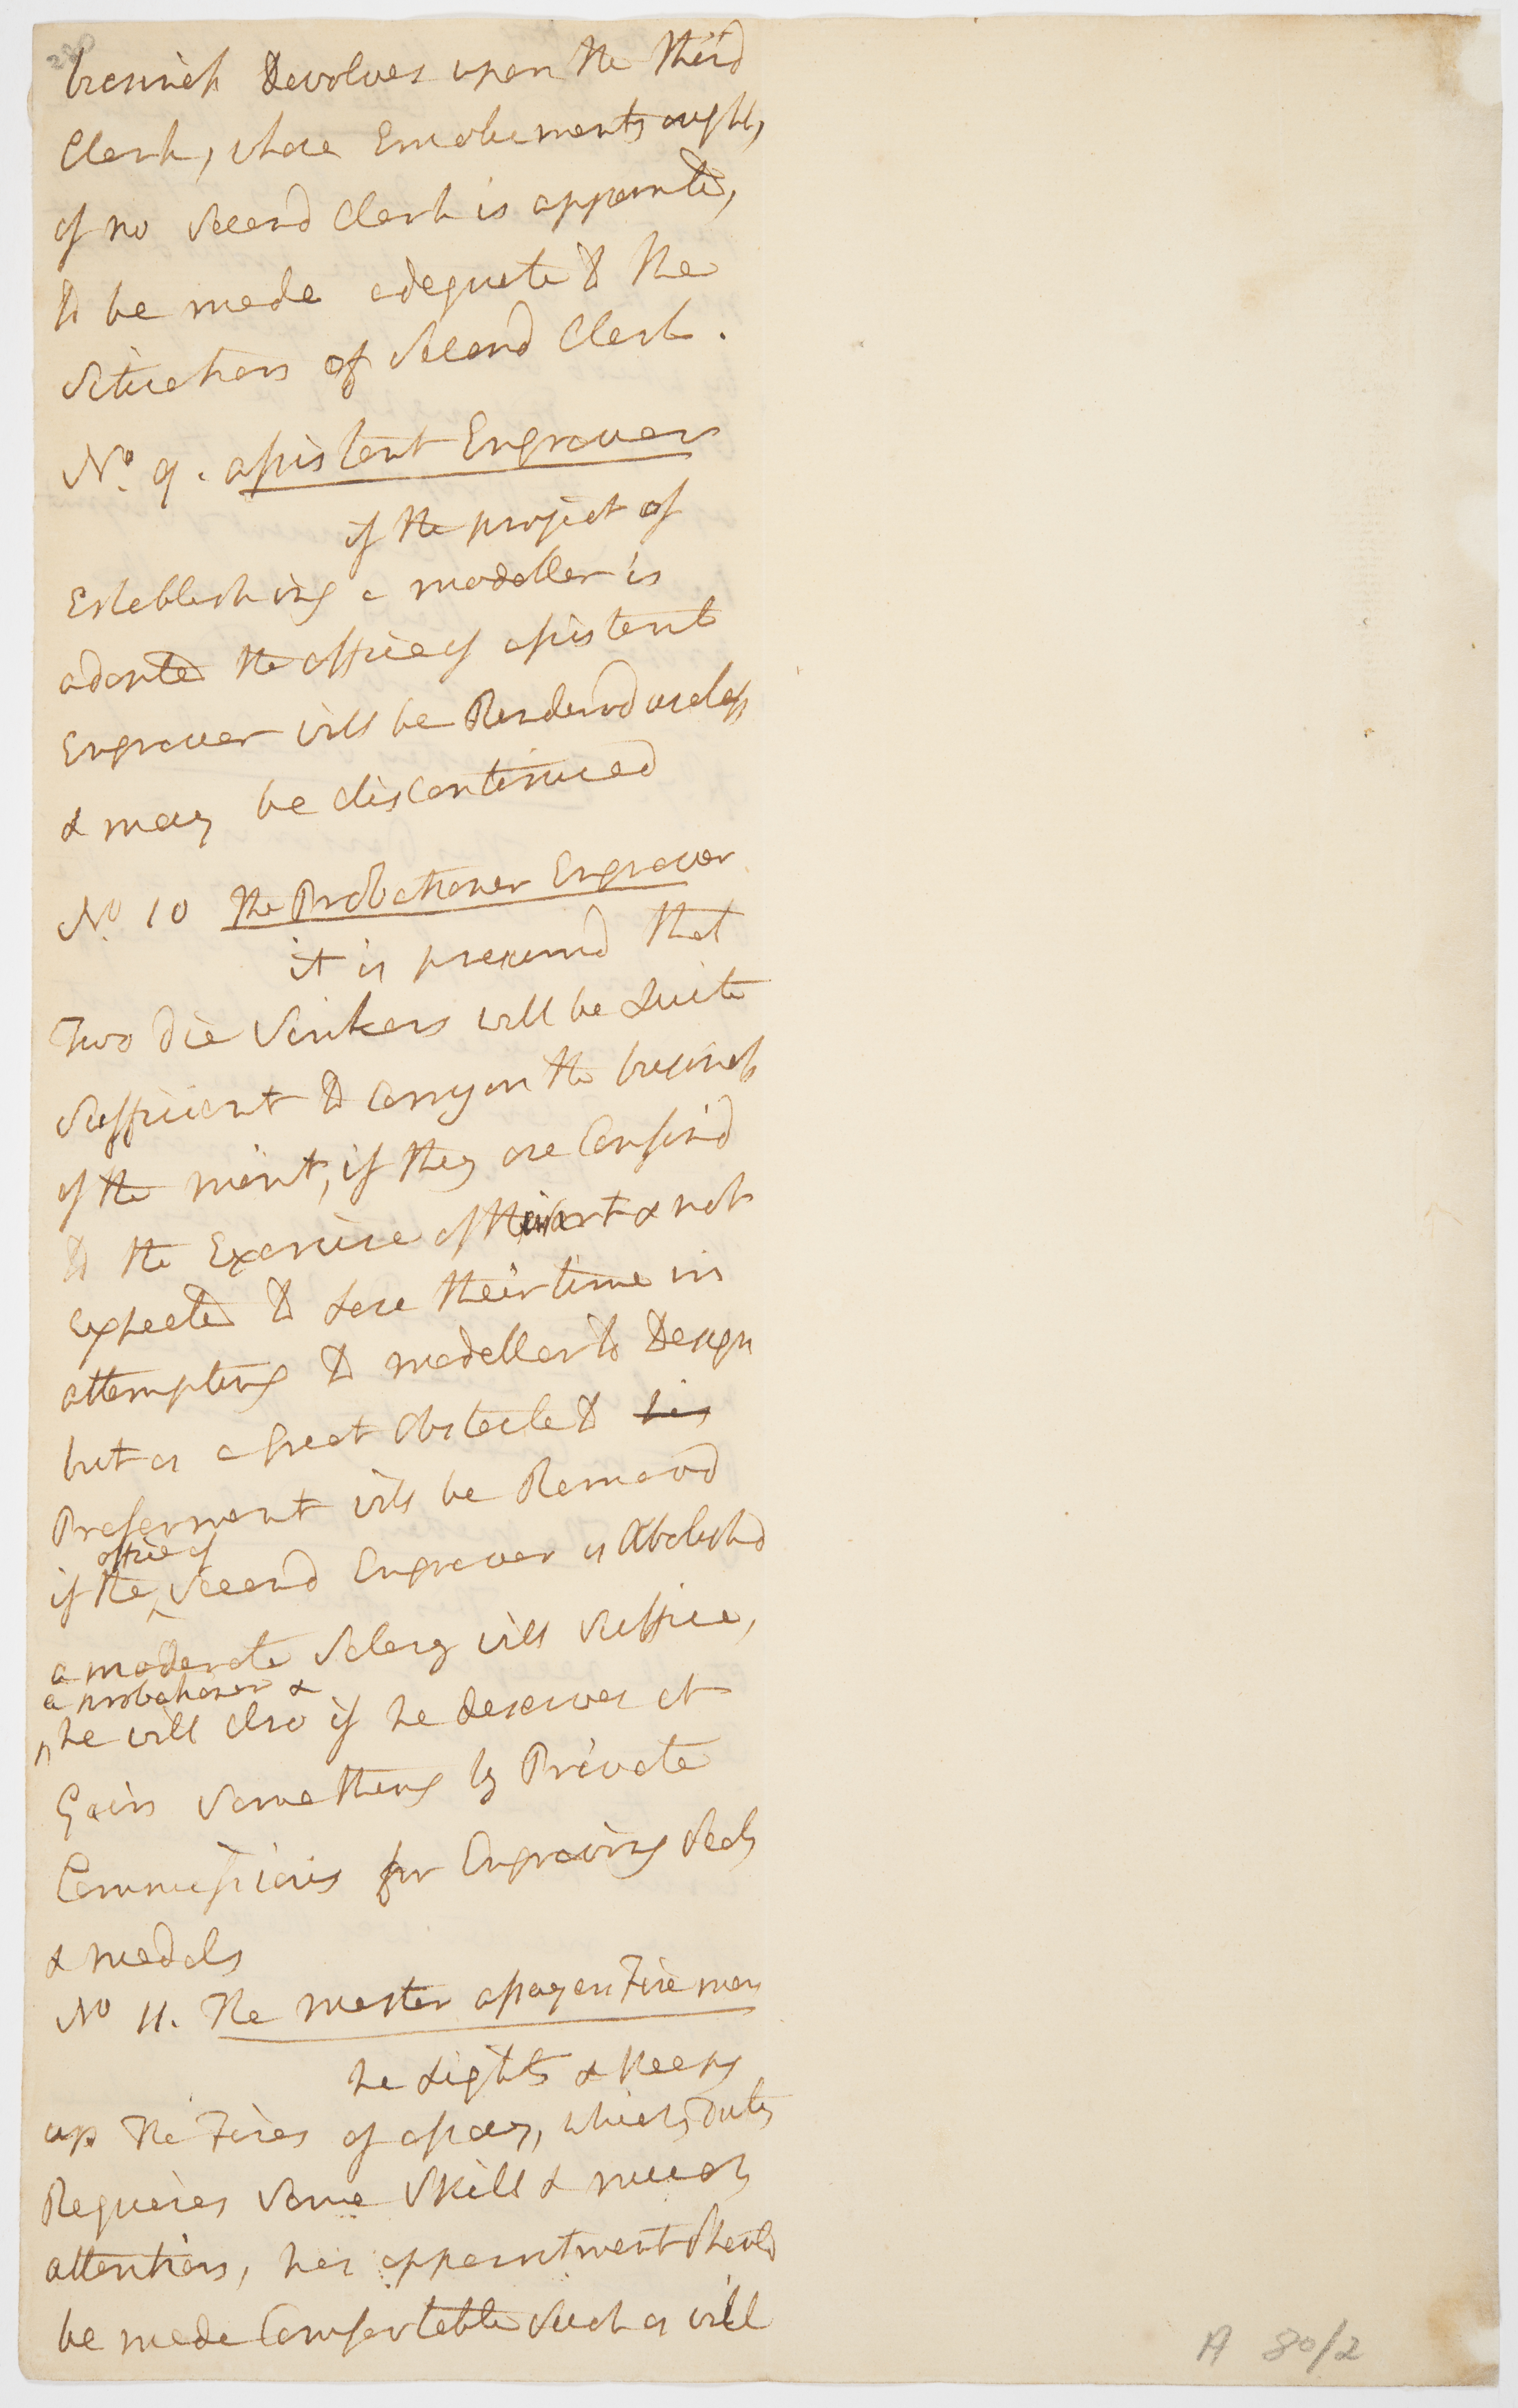 220
business Devolves upon the third
Clerk, whose Emoluments ought,
if no Second Clerk is appointed,
to be made adequate to the
Situation of Second Clerk.
No. 9. assistant Engraver
if the project of
Establishing a modeller is
adopted the office of assistant
Engraver will be Renderd useless
& may be discontinued
No. 10 the Probationer Engraver
it is presumd that
Two die Sinkers will be Quite
Sufficient to Carry on the business
of the mint, if they are Confind
to the Exercise of their art & not
expected to Lose their time in
attempting to modell or to Design
but as a great Obstacle to his
Preferment will be Removd
if the office of Second Engraver is Abolishd
a moderate Salary will Suffice,
a probationer &
he will also if he deserves it
Gain Something by Private
Commissions for Engraving Seals
& medals
No 11. The master assayers Fire man
he Lights & Keeps
up the Fires of assay, which Duty
Requires Some Skill & much
attention, his appointment Should
be made Comfortable Such as will
A 80/2